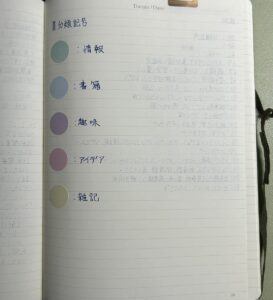 Theme/Date
■分類記号
:情報
:書籍
:趣味
:アイデア
:雑記